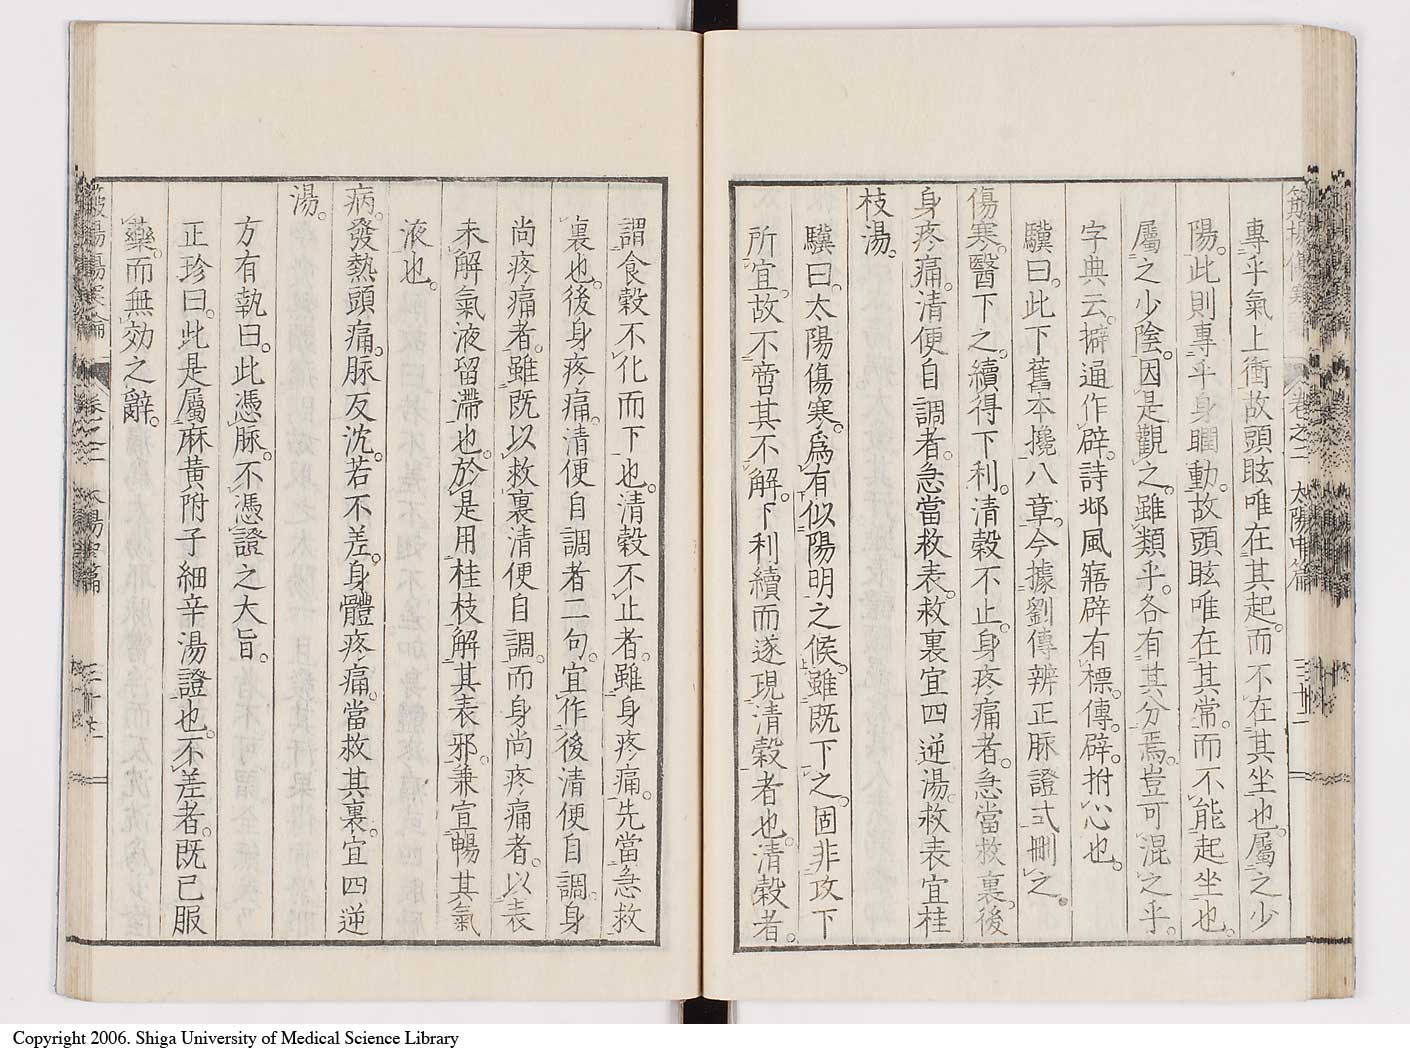 專乎氣上衝故頭眩唯在其起而不在其坐也屬之少
陽此則專乎身瞤動故頭眩唯在其常而不能起坐也
屬之少陰因是觀之雖類乎各有其分焉豈可混之乎
字典云擗通作辟詩邶風寤辟有標傳辟拊心也
驥曰此下舊本攙八章今據劉傳辨正脈證式刪之
傷寒醫下之續得下利清穀不止身疼痛者急當救裏後
身疼痛清便自調者急當救表救裏宜四逆湯救表宜桂
枝湯
驥曰太陽傷寒爲有似陽明之候雖既下之固非攻下
所宜故不啻其不解下利續而遂現清穀者也清穀者
卷之二 太陽中篇 三十二
謂食穀不化而下也清穀不止者雖身疼痛先當急救
裏也後身疼痛清便自調者二句宜作後清便自調身
尚疼痛者雖既以救裏清便自調而身尚疼痛者以表
未解氣液留滯也於是用桂枝解其表邪兼宣暢其氣
液也
病發熱頭痛脈反沈若不差身體疼痛當救其裏宜四逆
湯
方有執曰此憑脈不憑證之大旨
正珍曰此是屬麻黃附子細辛湯證也不差者既已服
藥而無効之辭
Copyright 2006. Shiga University of Medical Science Library